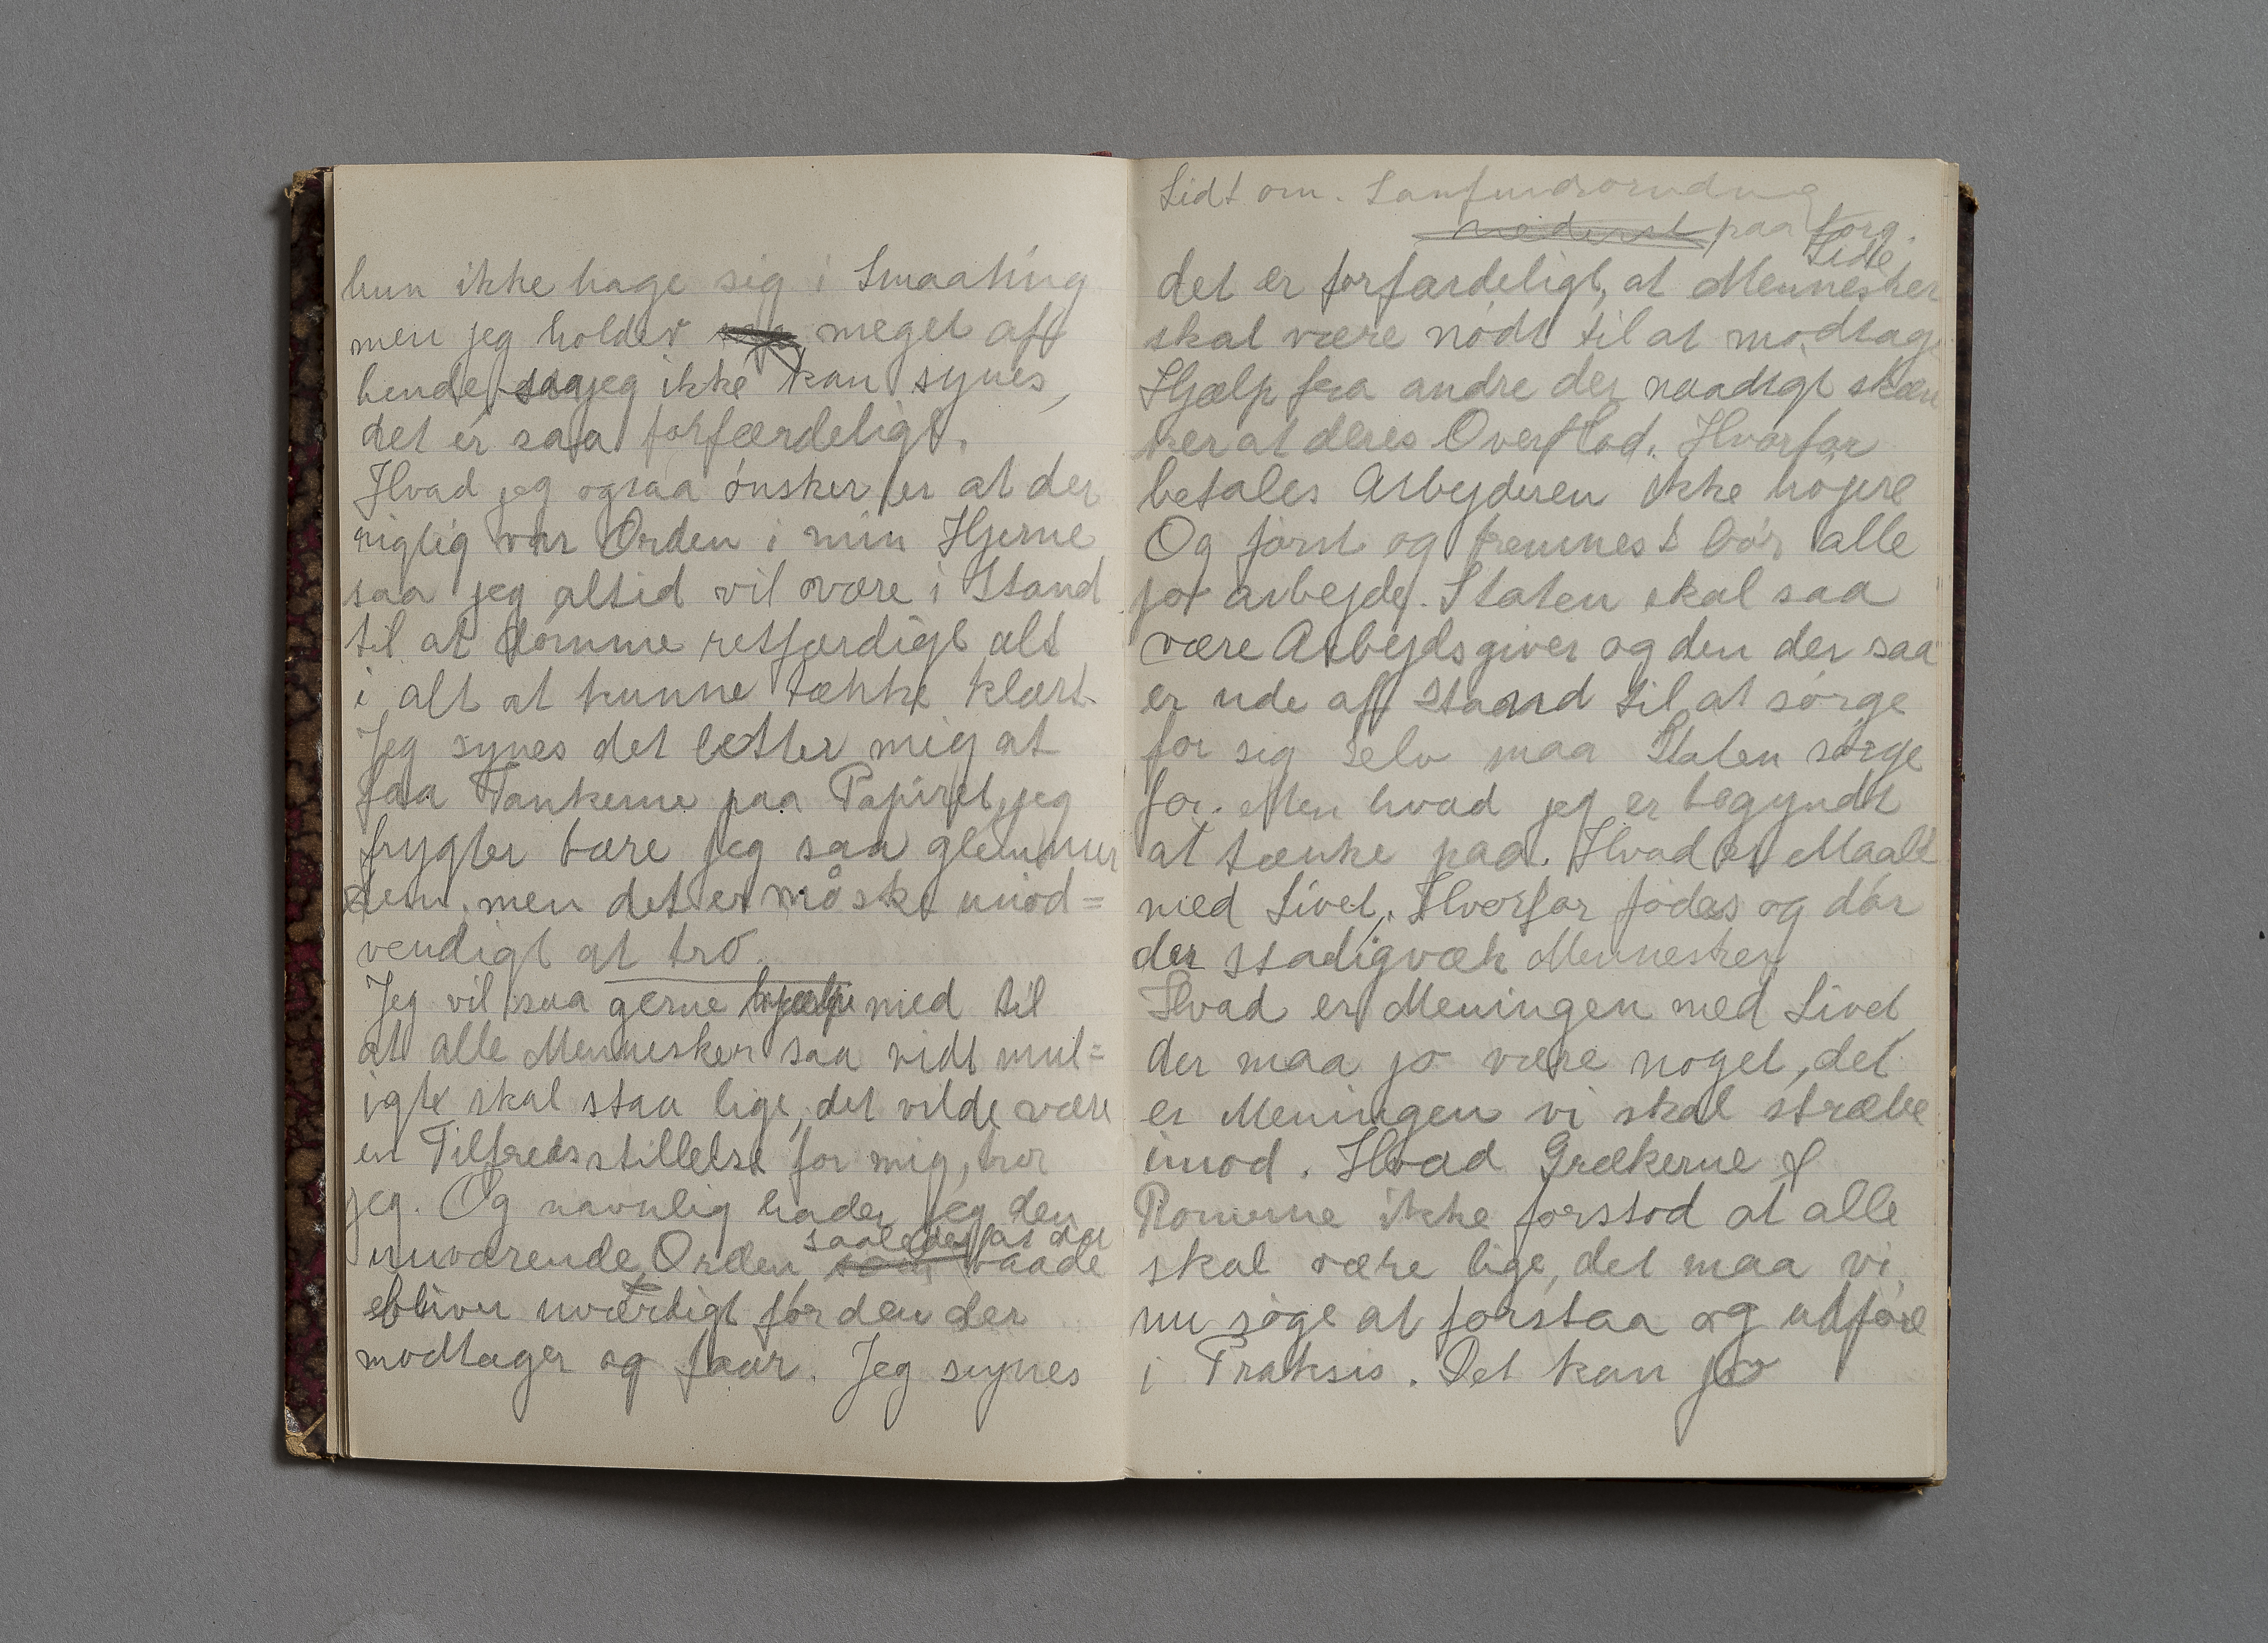 hun ikke hage sig i Smaating
men jeg holder meget aff
hende saa jeg ikke kan synes,
det er saa forfærdeligt.
Hvad jeg ogsaa ønsker er at der
rigtig var Orden i min Hjerne
saa jeg altid vil være i Stand
til at dømme retfærdigt alt
i alt at kunne tænke klart.
Jeg synes det letter mig at
faa Tankerne paa Papiret, jeg
frygter bare jeg saa glemmer
dem, men det er måske unød=
vendigt at tro.
Jeg vil saa gerne hjælpe med til
at alle Mennesker saa vidt mul=
igt skal staa lige, det vilde være
en Tilfredsstillelse for mig, tror
jeg. Og navnlig hader jeg den
saaledes at det
nuværende Orden, som baade
bliver uværdigt for den der
modtager og faar. Jeg synes
Lidt om. Samfundsorndning
nederst paa forg.
Side
det er forfærdeligt, at Mennesker
skal være nødt til at modtage
Hjælp fra andre der naadigt skæn
ker at deres Overflod. Hvorfor
betales Arbejderen ikke højere
Og først og fremmest bør alle
jo arbejde. Staten skal saa
være Arbejdsgiver og den der saa
er ude aff Staand til at sørge
for sig selv maa Staten sørge
for. Men hvad jeg er begyndt
at tænke paa. Hvad er Maalt
med Livet. Hvorfor fødes og dør
der stadigvæk Mennesker
Hvad er Meningen med Livet
der maa jo være noget, det
er Meningen vi skal stræbe
imod. Hvad Grækerne &
Romerne ikke forstod at alle
skal være lige, det maa vi
nu søge at forstaa og udføre
i Praksis. Det kan jo